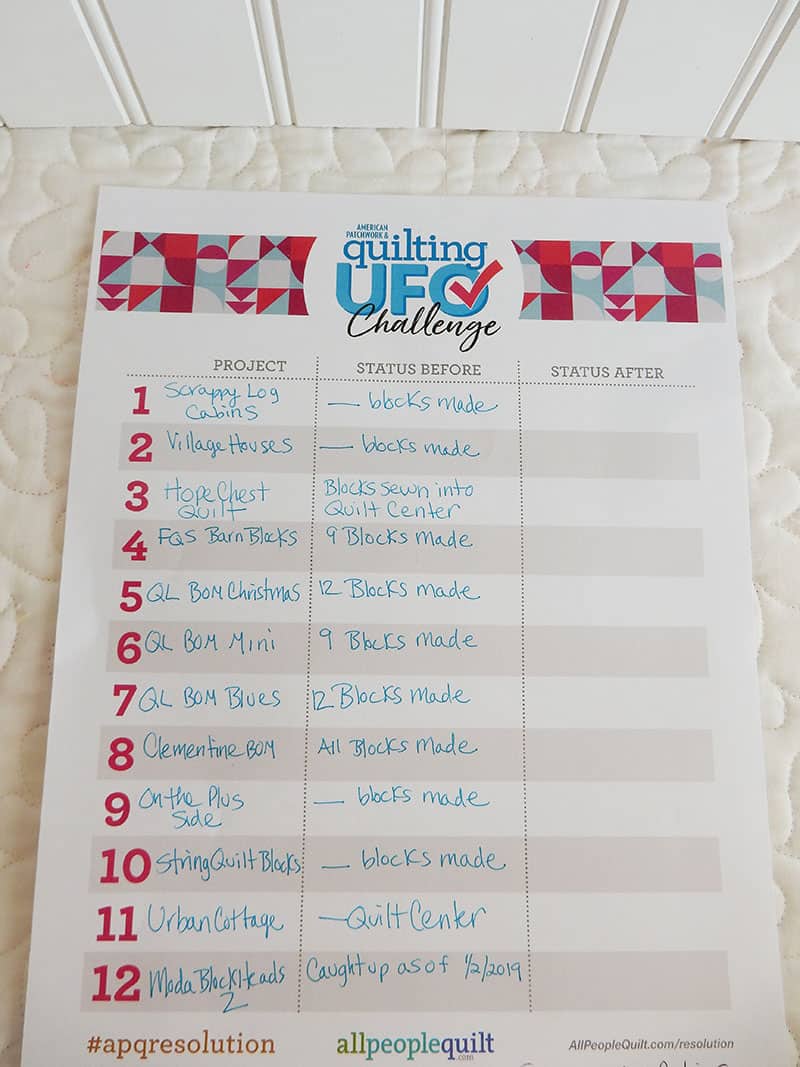 AMERICAN
PATCHWORK &
quilting
UFO
Challenge
PROJECT STATUS BEFORE STATUS AFTER
1 Scrappy Log Cabins — blocks made
2 Village Houses — blocks made
3 Hope Chest Quilt Blocks sewn into Quilt Center
4 FQS Barn Blocks 9 Blocks made
5 QL BOM Christmas 12 Blocks made
6 QL BOM Mini 9 Blocks made
7 QL BOM Blues 12 Blocks made
8 Clementine BOM All Blocks made
9 On the Plus Side — blocks made
10 String Quilt Blocks — blocks made
11 Urban Cottage — Quilt Center
12 Moda BlockHeads 2 Caught up as of 1/2/2019
#apqresolution allpeoplequilt.com AllPeopleQuilt.com/resolution